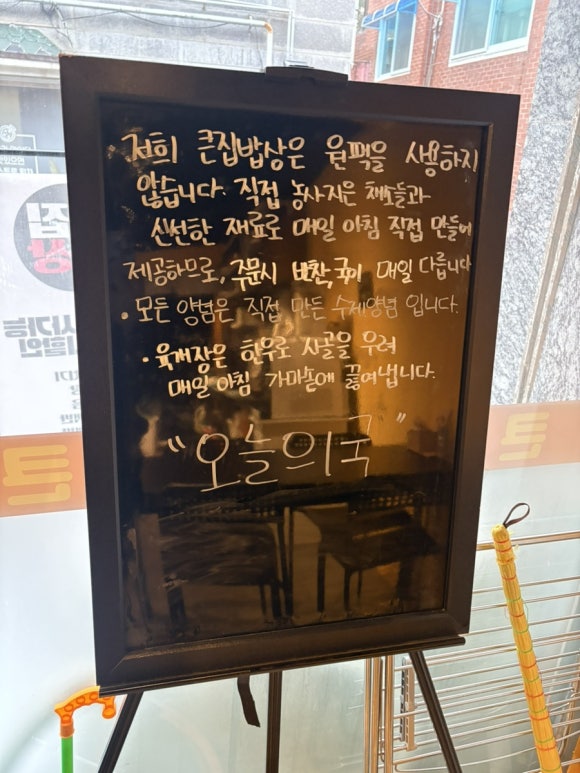 저희 큰집밥상은 원팩을 사용하지
않습니다. 직접 농사지은 채소들과
신선한 재료로 매일 아침 직접 만들어
제공하므로, 주문시 반찬, 국이 매일 다릅니다
• 모든 양념은, 직접 만든 수제양념 입니다.
• 육개장은 한우로 사골을 우려
매일 아침 가마솥에 끓여냅니다.
"오늘의국"